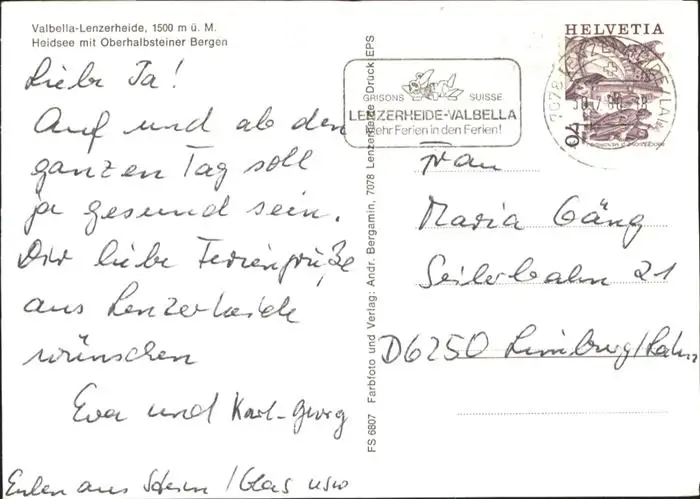 Valbella-Lenzerheide, 1500 m ü. M.
Heidsee mit Oberhalbsteiner Bergen
Liebe Ja!
Auf und ab den
ganzen Tag soll
ja gesund sein.
Dir liebe Feriengrüße
aus Lenzerheide
wünschen
Eva und Karl-Georg
Eulen aus Stein / Glas usw
FS 6807 Farbfoto und Verlag: Andr. Bergamin, 7078 Lenzerheide Druck EPS
GRISONS SUISSE
LENZERHEIDE-VALBELLA
Mehr Ferien in den Ferien!
HELVETIA
70
7078 LENZERHEIDE/LAI
Frau
Maria Gäng
Seilerbahn 21
D6250 Limburg/Lahn